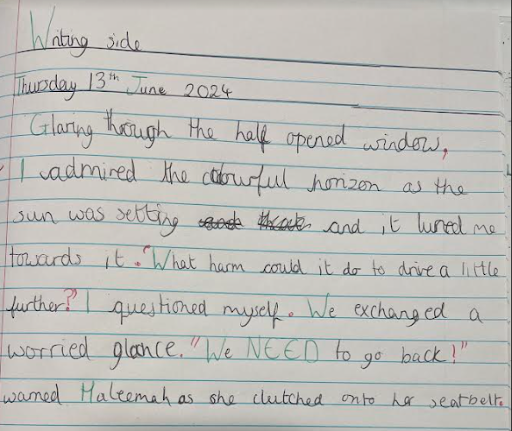 Writing side
Thursday 13th June 2024
Glaring through the half opened window,
I admired the colourful horizon as the
sun was setting and it lured me
towards it. "What harm could it do to drive a little
further?" I questioned myself. We exchanged a
worried glance. "We NEED to go back!"
warned Haleemah as she clutched onto her seatbelt.